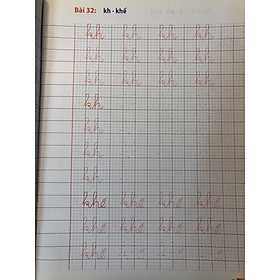 Bài 32: kh - khế
kh kh kh kh
kh kh kh kh
kh kh kh kh
kh
kh
kh
kh
khế khế khế khế
khế khế khế khế
khế